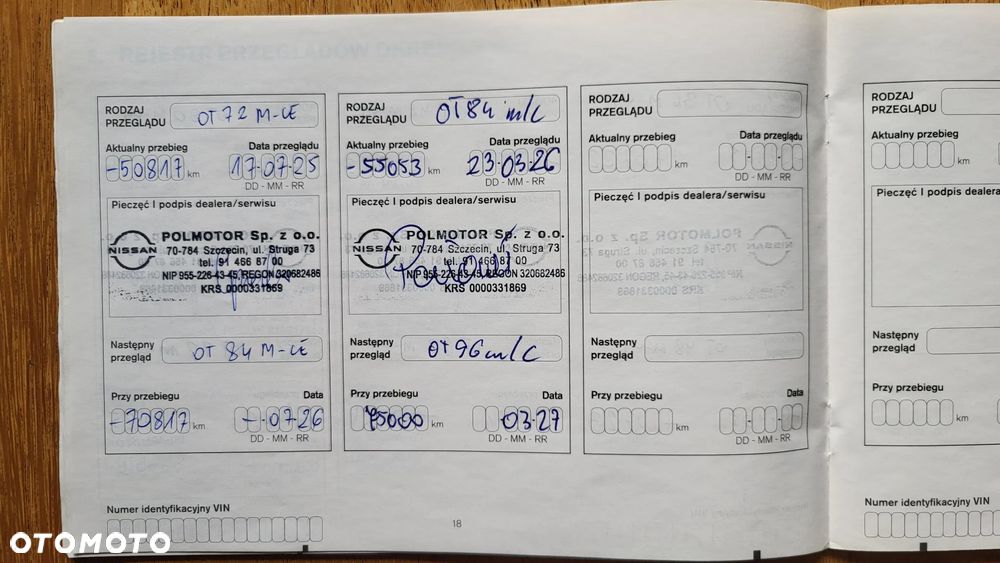 RODZAJ PRZEGLĄDU
OT 72 M-CE
Aktualny przebieg
Data przeglądu
-50817 km
17-07-25
DD - MM - RR
Pieczęć I podpis dealera/serwisu
NISSAN
POLMOTOR Sp. z o.o.
70-784 Szczecin, ul. Struga 73
tel. 91 466 87 00
NIP 955-226-43-45, REGON 320682486
KRS 0000331869
Następny przegląd
OT 84 M-CE
Przy przebiegu
Data
-70817 km
- -07-26
DD - MM - RR
RODZAJ PRZEGLĄDU
OT 84 m/c
Aktualny przebieg
Data przeglądu
-55053 km
23-03-26
DD - MM - RR
Pieczęć I podpis dealera/serwisu
NISSAN
POLMOTOR Sp. z o.o.
70-784 Szczecin, ul. Struga 73
tel. 91 466 87 00
NIP 955-226-43-45, REGON 320682486
KRS 0000331869
Następny przegląd
OT 96 m/c
Przy przebiegu
Data
75000 km
03-27
DD - MM - RR
RODZAJ PRZEGLĄDU
Aktualny przebieg
Data przeglądu
km
DD - MM - RR
Pieczęć I podpis dealera/serwisu
Następny przegląd
Przy przebiegu
Data
km
DD - MM - RR
Numer identyfikacyjny VIN
18
RODZAJ PRZEGLĄDU
Aktualny przebieg
km
Pieczęć I podpis dealera
Następny przegląd
Przy przebiegu
km
Numer identyfikacyjny VIN
OTOMOTO